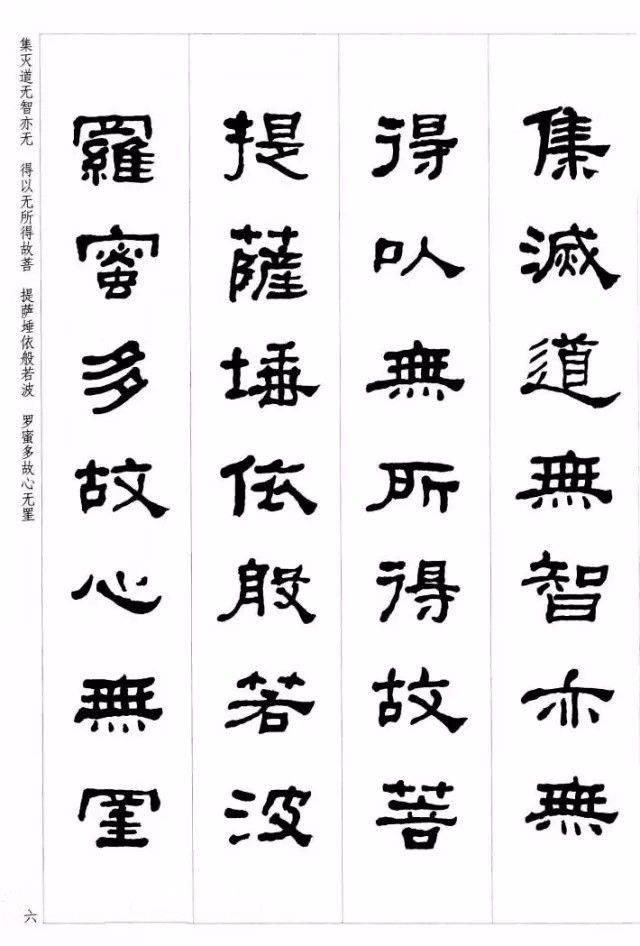 集滅道無智亦無
得以無所得故菩
提薩埵依般若波
羅蜜多故心無罣
集灭道无智亦无 得以无所得故菩 提萨埵依般若波 罗蜜多故心无罣
六